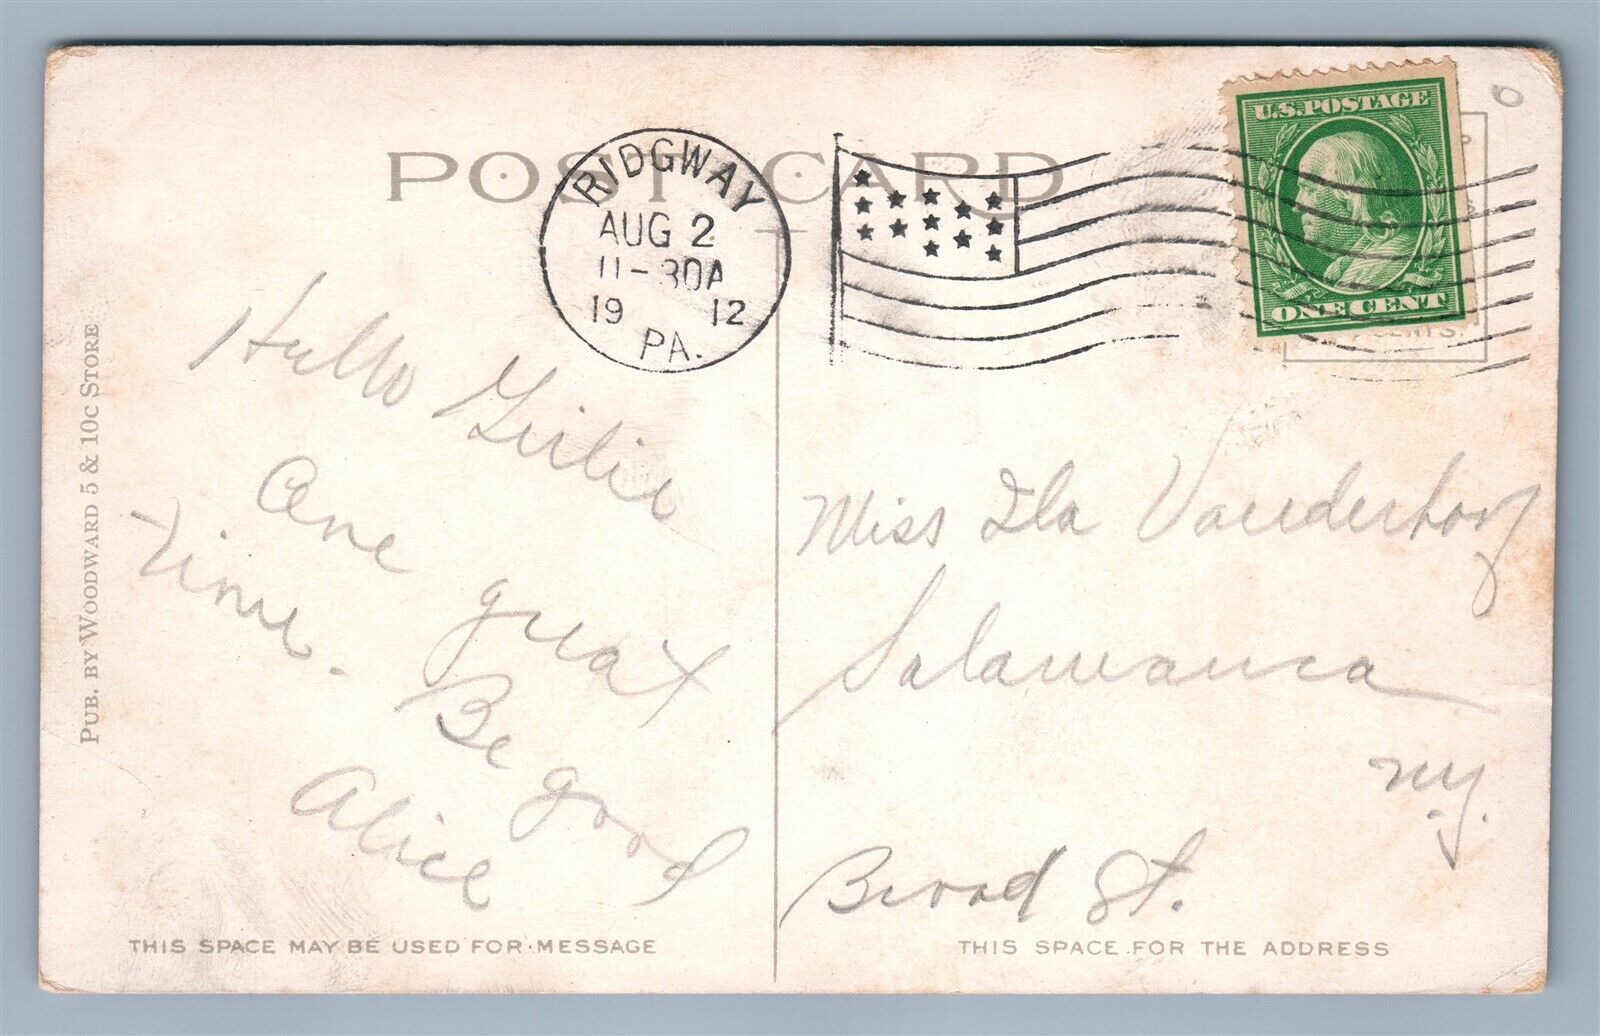 POST CARD
RIDGWAY
AUG 2
11-30A
19 12
PA.
U.S. POSTAGE
ONE CENT
CENTS.
PUB. BY WOODWARD 5 & 10c STORE
Hullo Girlie
One great
Time.
Be good
Alice
Miss Ila Vanderhoof
Salamanca
N.Y.
Broad St.
THIS SPACE MAY BE USED FOR MESSAGE
THIS SPACE FOR THE ADDRESS